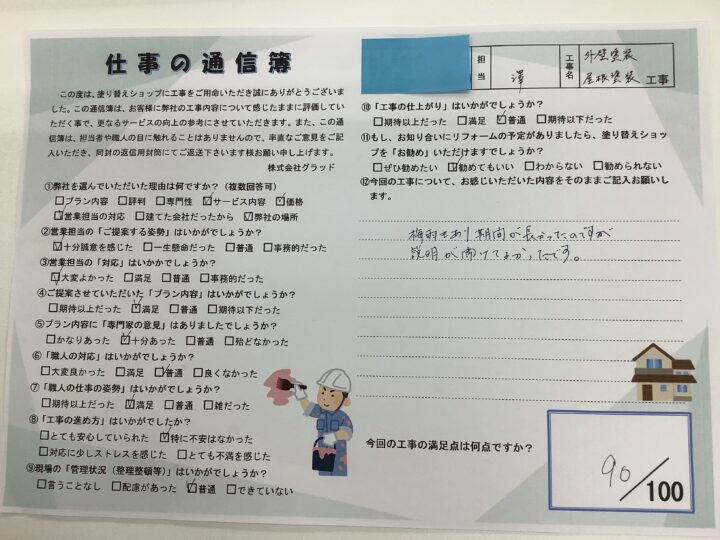 仕事の通信簿
この度は、塗り替えショップに工事をご用命いただき誠にありがとうございま
した。この通信簿は、お客様に弊社の工事内容について感じたままに評価してい
ただく事で、更なるサービスの向上の参考にさせていただきます。また、この通
信簿は、担当者や職人の目に触れることはありませんので、率直なご意見をご記
入いただき、同封の返信用封筒にてご返送下さいます様お願い申し上げます。
株式会社グラッド
①弊社を選んでいただいた理由は何ですか？（複数回答可）
□プラン内容 □評判 □専門性 ☑サービス内容 ☑価格
☑営業担当の対応 □建てた会社だったから ☑弊社の場所
②営業担当の「ご提案する姿勢」はいかがでしたか？
☑十分誠意を感じた □一生懸命だった □普通 □事務的だった
③営業担当の「対応」はいかかでしょうか？
☑大変よかった □満足 □普通 □事務的だった
④ご提案させていただいた「プラン内容」はいかがでしょうか？
□期待以上だった ☑満足 □普通 □期待以下だった
⑤プラン内容に「専門家の意見」はありましたでしょうか？
□かなりあった ☑十分あった □普通 □殆どなかった
⑥「職人の対応」はいかがでしょうか？
□大変良かった □満足 ☑普通 □良くなかった
⑦「職人の仕事の姿勢」はいかがでしょうか？
□期待以上だった ☑満足 □普通 □雑だった
⑧「工事の進め方」はいかがでしたか？
□とても安心していられた ☑特に不安はなかった
□対応に少しストレスを感じた □とても不満を感じた
⑨現場の「管理状況（整理整頓等）」はいかがでしょうか？
□言うことなし □配慮があった ☑普通 □できていない
担当 澤 工事名 外壁塗装 屋根塗装 工事
⑩「工事の仕上がり」はいかがでしょうか？
□期待以上だった □満足 ☑普通 □期待以下だった
⑪もし、お知り合いにリフォームの予定がありましたら、塗り替えショッ
プを「お勧め」いただけますでしょうか？
□ぜひ勧めたい ☑勧めてもいい □わからない □勧められない
⑫今回の工事について、お感じいただいた内容をそのままご記入お願いし
ます。
梅雨もあり期間が長かったのですが
説明が聞けてよかったです。
今回の工事の満足点は何点ですか？
90/100